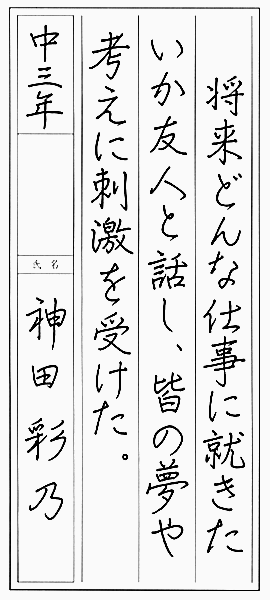 将来どんな仕事に就きた
いか友人と話し、皆の夢や
考えに刺激を受けた。
中三年
氏名
神田彩乃